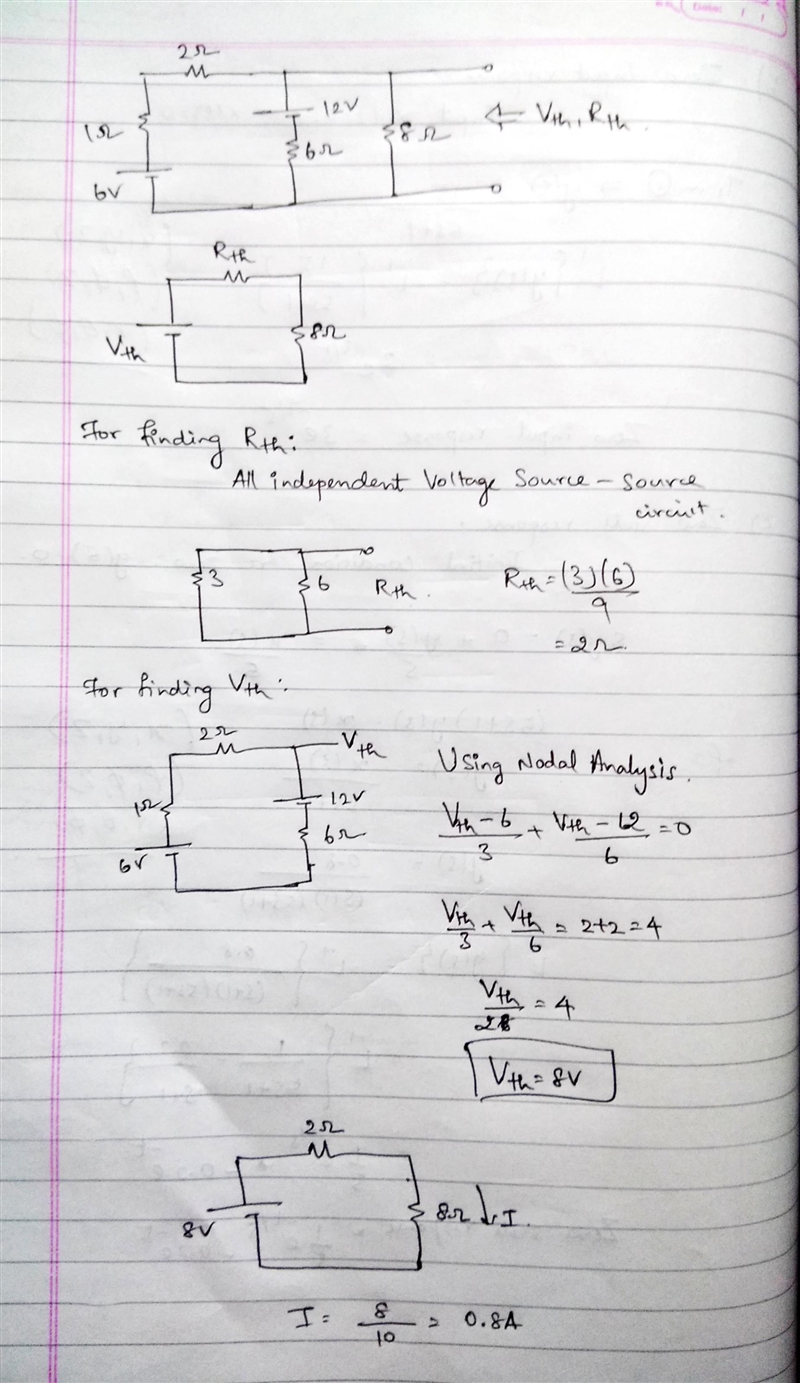 2Ω
12V
1Ω
6Ω
8Ω
⇐ Vth, Rth.
6V
Rth
8Ω
Vth
For finding Rth:
All independent Voltage Source – Source
circuit.
3
6
Rth.
Rth = (3)(6)
9
= 2Ω.
For finding Vth:
2Ω
Vth
1Ω
12V
6Ω
6V
Using Nodal Analysis.
Vth – 6 + Vth – 12 = 0
3 6
Vth + Vth = 2+2 = 4
3 6
Vth = 4
2
Vth = 8V
2Ω
8V
8Ω ↓ I.
I = 8 = 0.8A
10